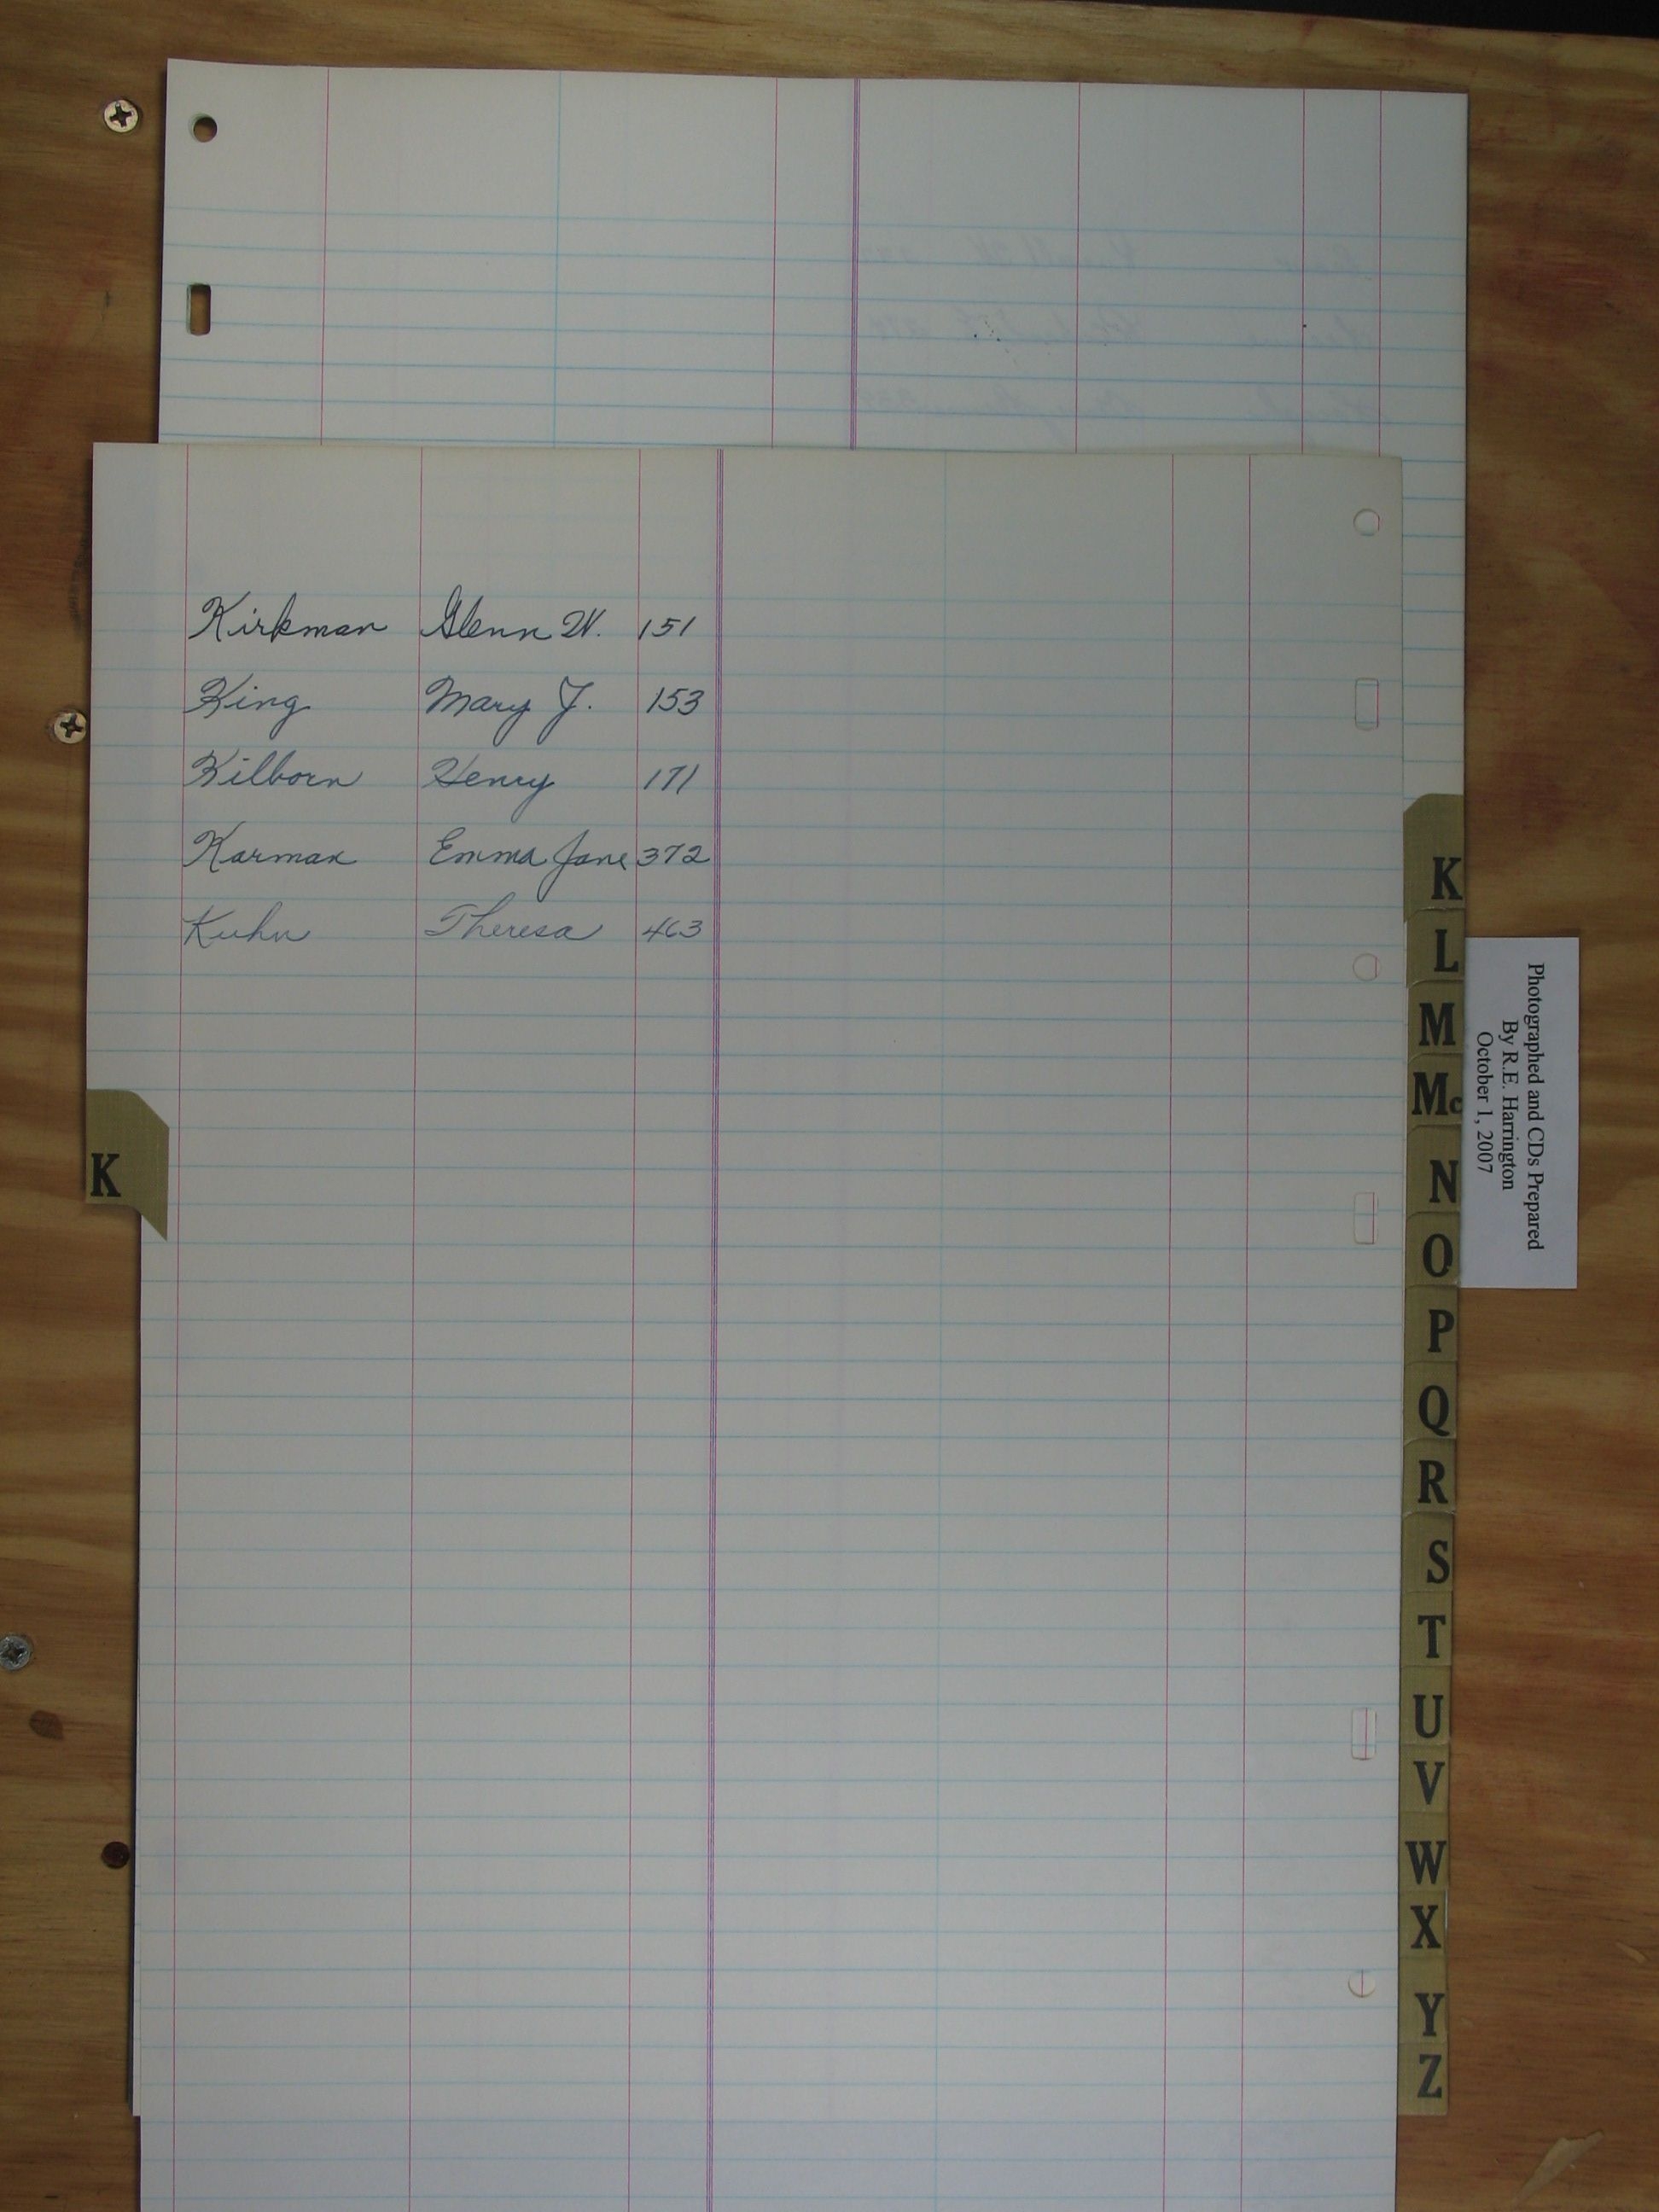 Kirkman Glenn W. 151
King Mary J. 153
Kilborn Henry 171
Karman Emma Jane 372
Kuhn Theresa 463
K
K
L
M
Mc
N
O
P
Q
R
S
T
U
V
W
X
Y
Z
Photographed and CDs Prepared
By R.E. Harrington
October 1, 2007